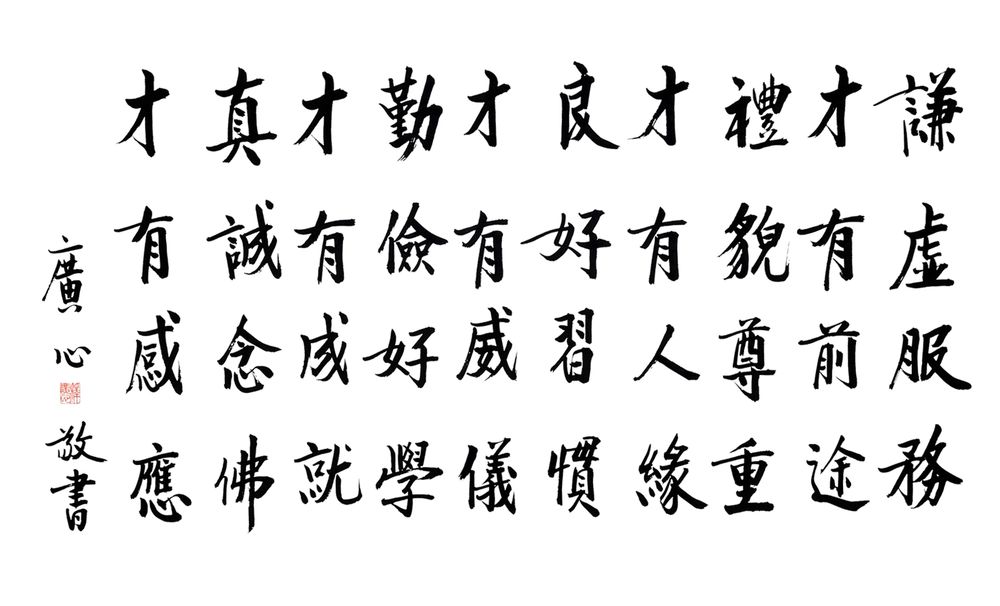 謙虛服務
才有前途
禮貌尊重
才有人緣
良好習慣
才有威儀
勤儉好學
才有成就
真誠念佛
才有感應
廣心敬書